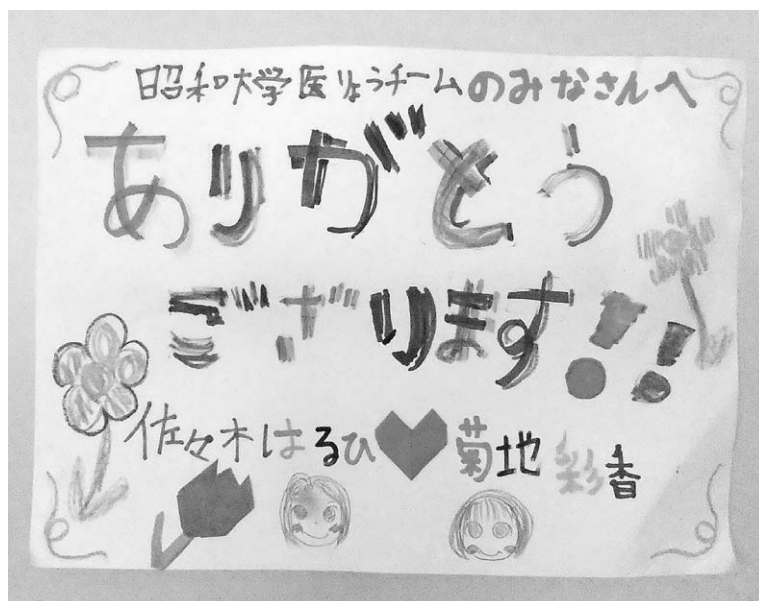 昭和大学医りょうチームのみなさんへ
ありがとう
ござります!!
佐々木はるひ♥菊地彩香